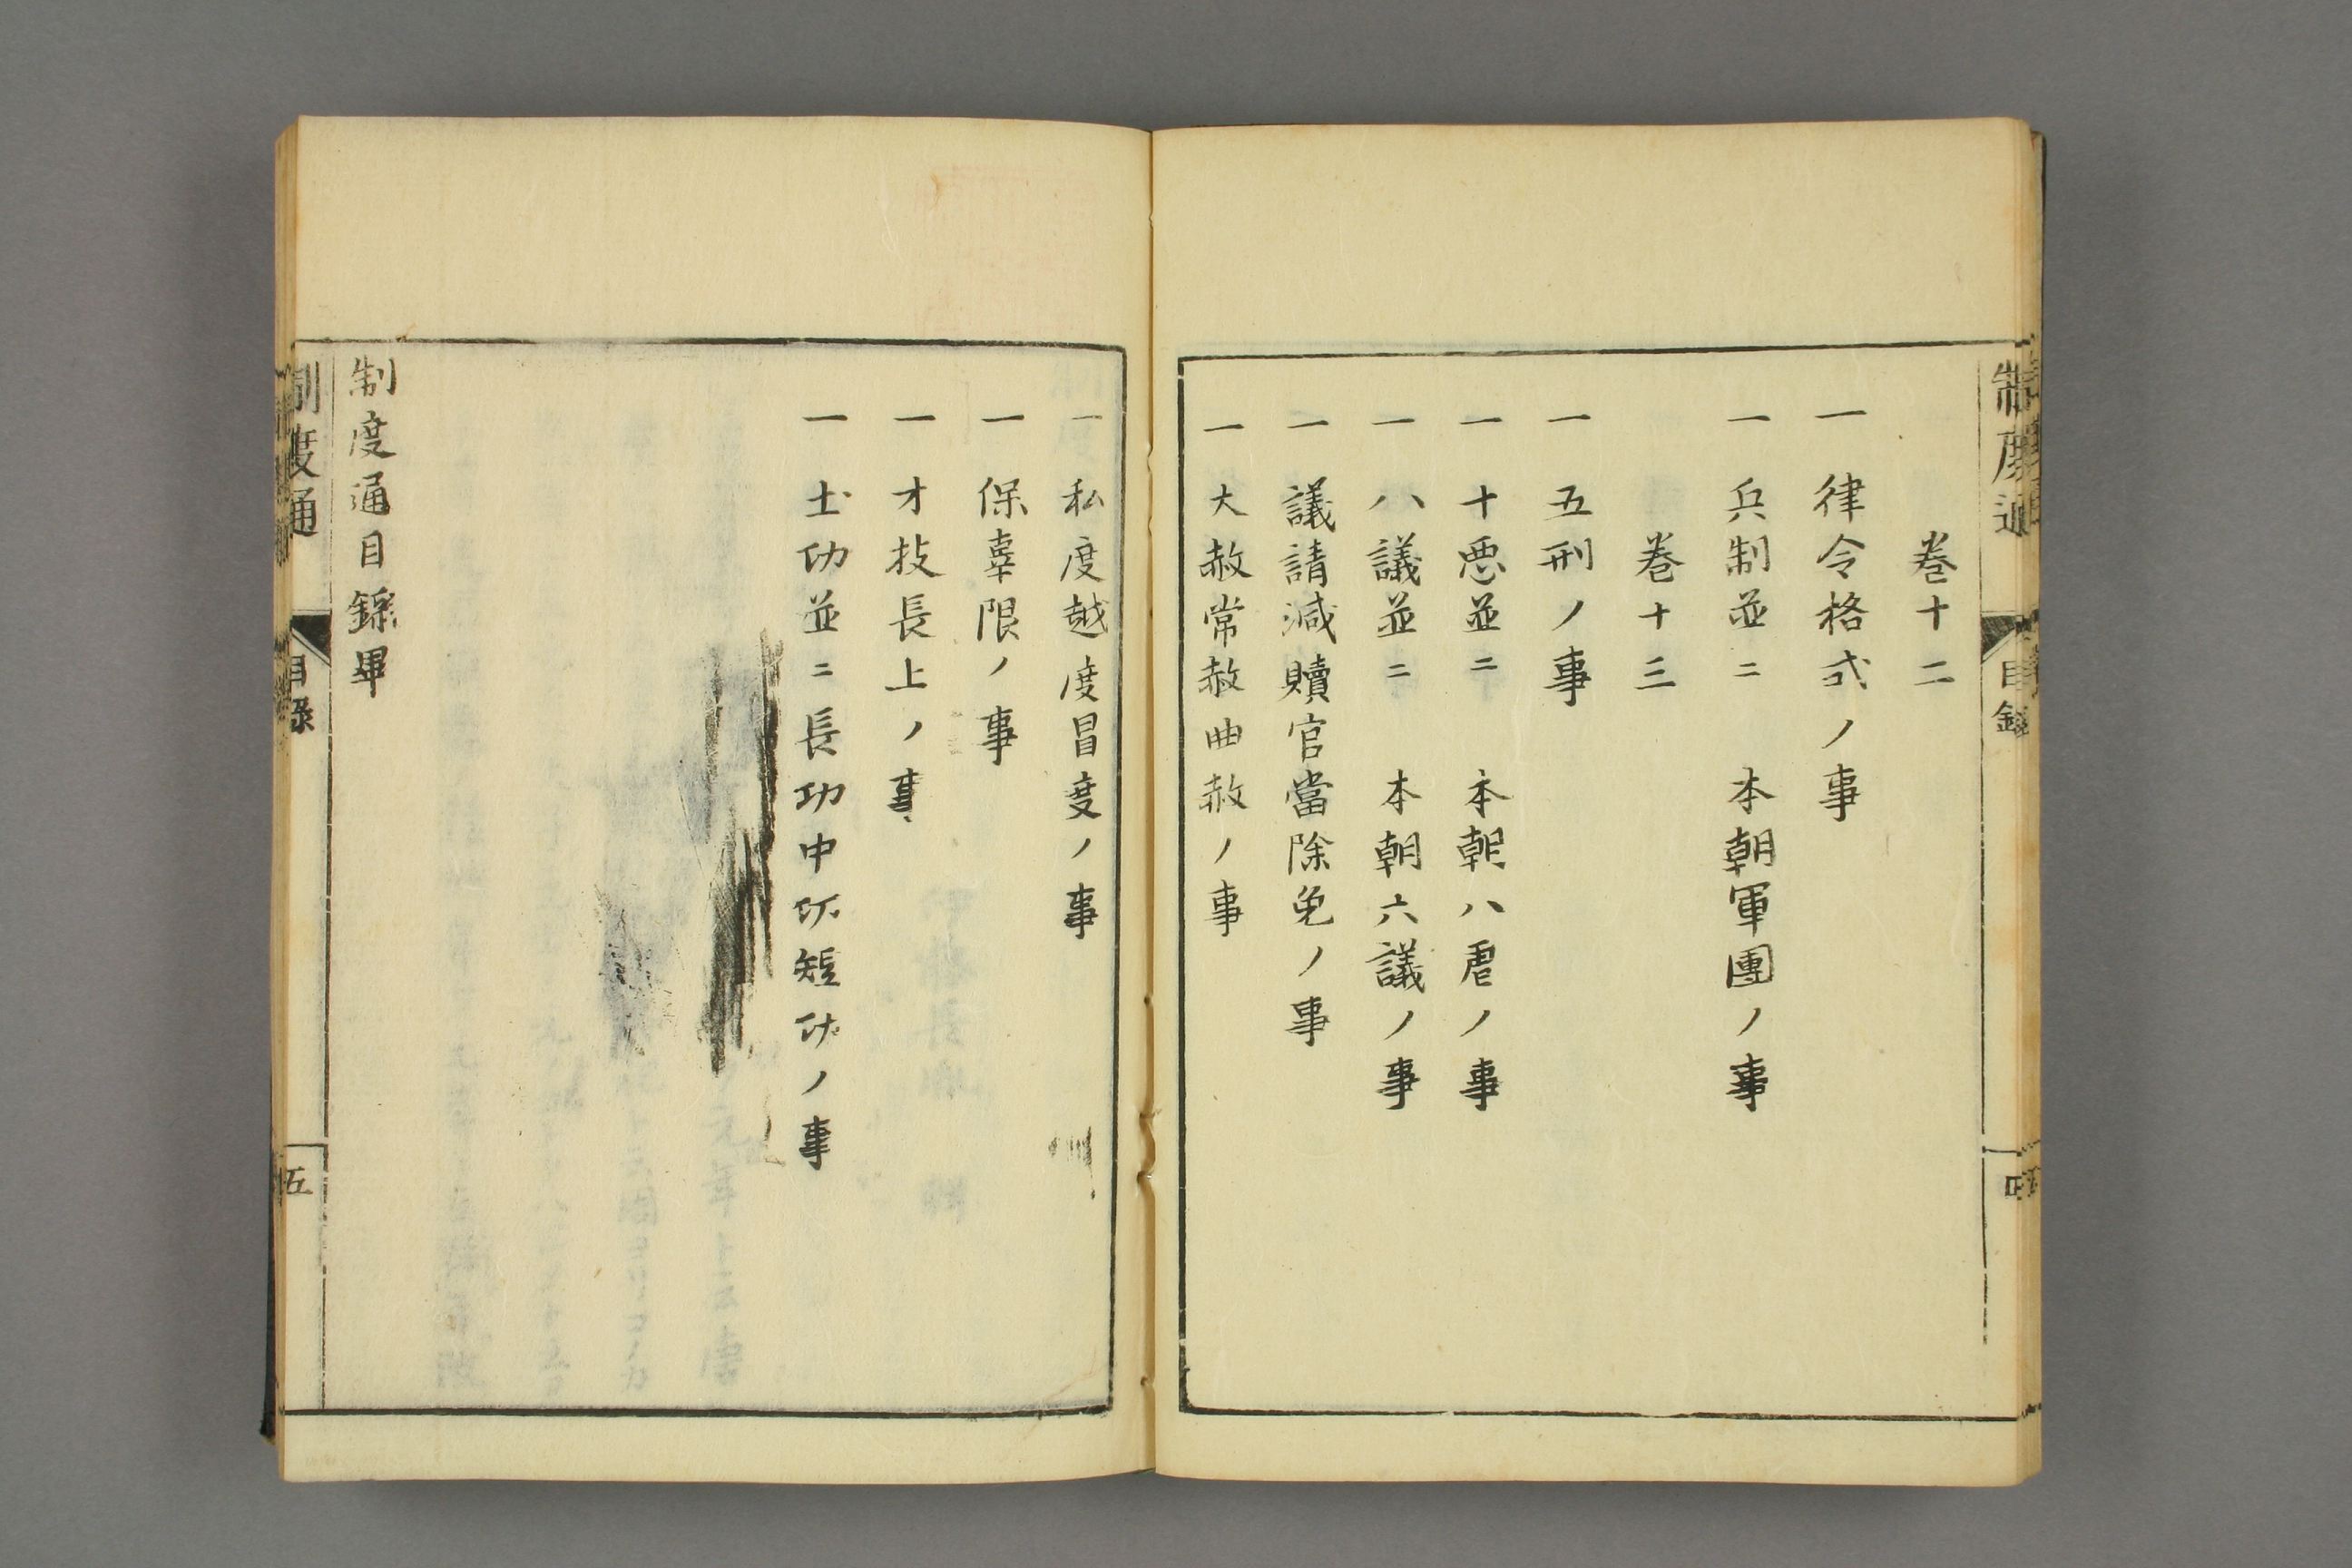 制度通
目録
四
巻十二
一 律令格式ノ事
一 兵制並ニ 本朝軍團ノ事
巻十三
一 五刑ノ事
一 十悪並ニ 本朝八虐ノ事
一 八議並ニ 本朝六議ノ事
一 議請減贖官當除免ノ事
一 大赦常赦曲赦ノ事
一 私度越度冒度ノ事
一 保辜限ノ事
一 才技長上ノ事
一 土功並ニ長功中功短功ノ事
制度通目録畢
制度通
目録
五